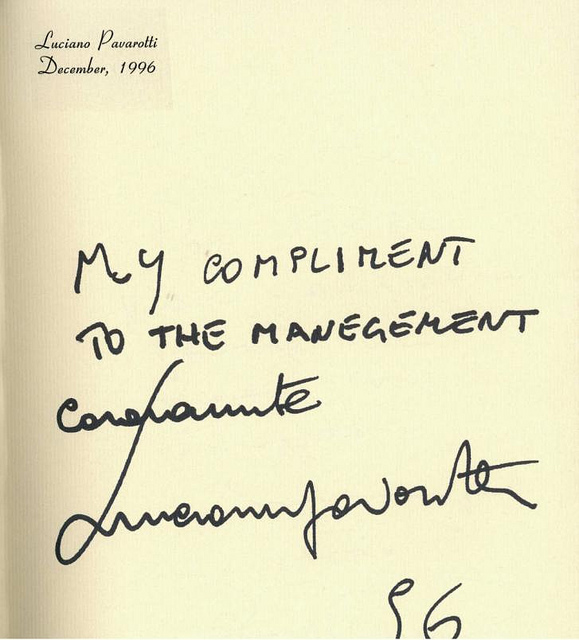 Luciano Pavarotti
December, 1996
MY COMPLIMENT
TO THE MANEGEMENT
Cordialmente
Luciano Pavarotti
96